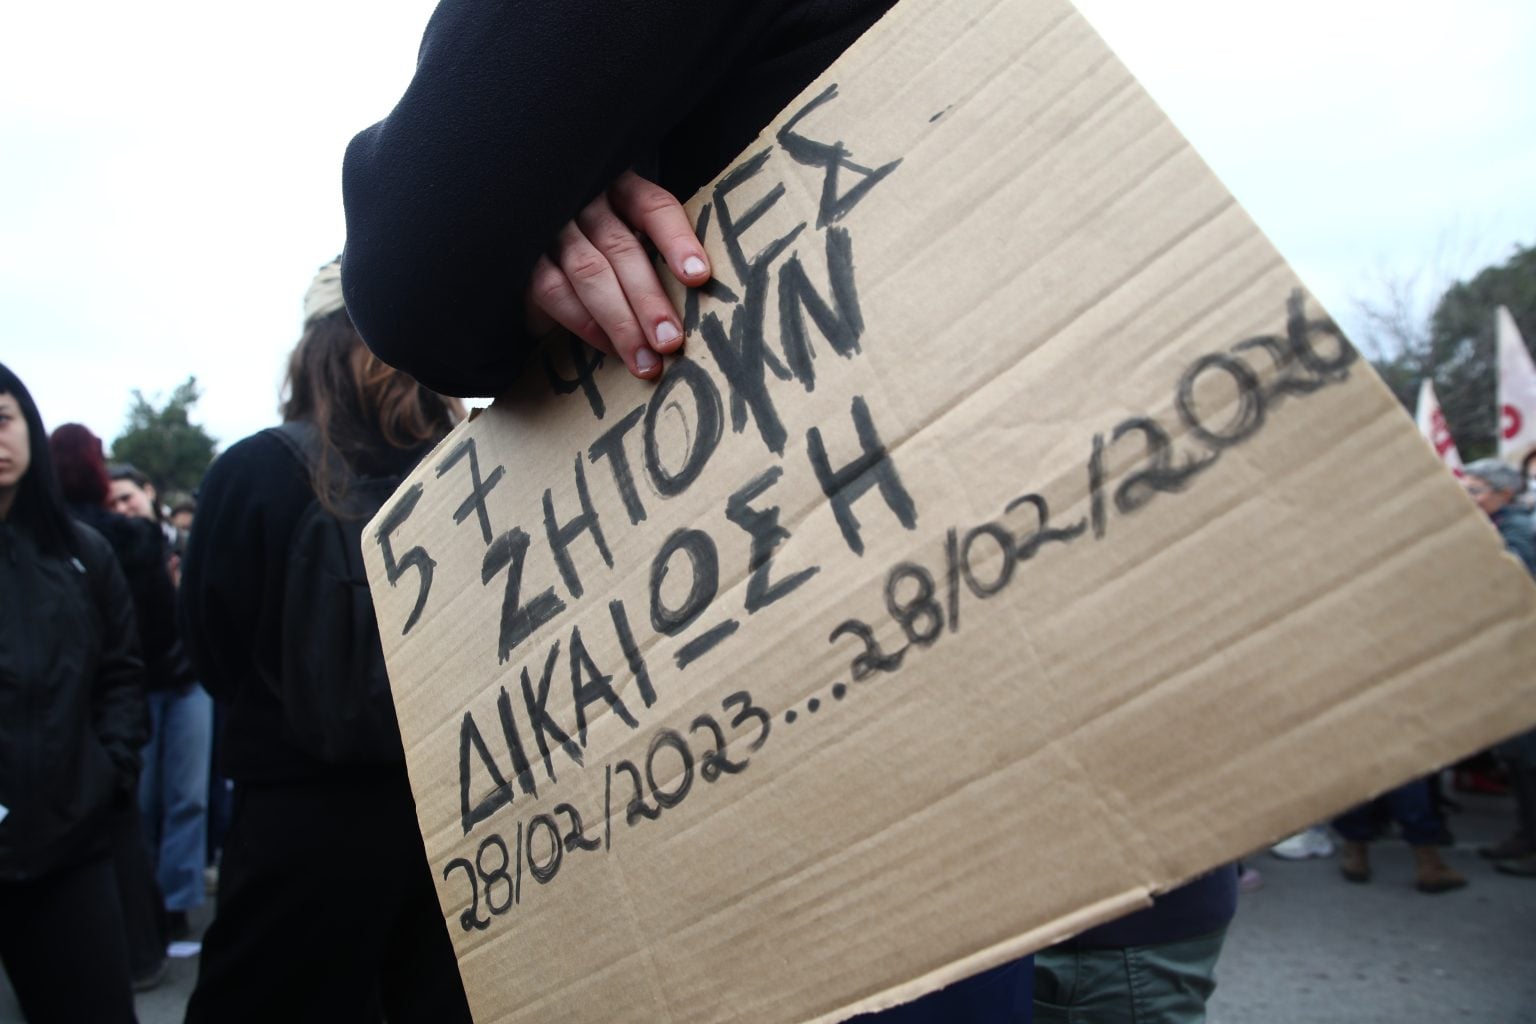 57 ΨΥΧΕΣ
ΖΗΤΟΥΝ
ΔΙΚΑΙΩΣΗ
28/02/2023...28/02/2026